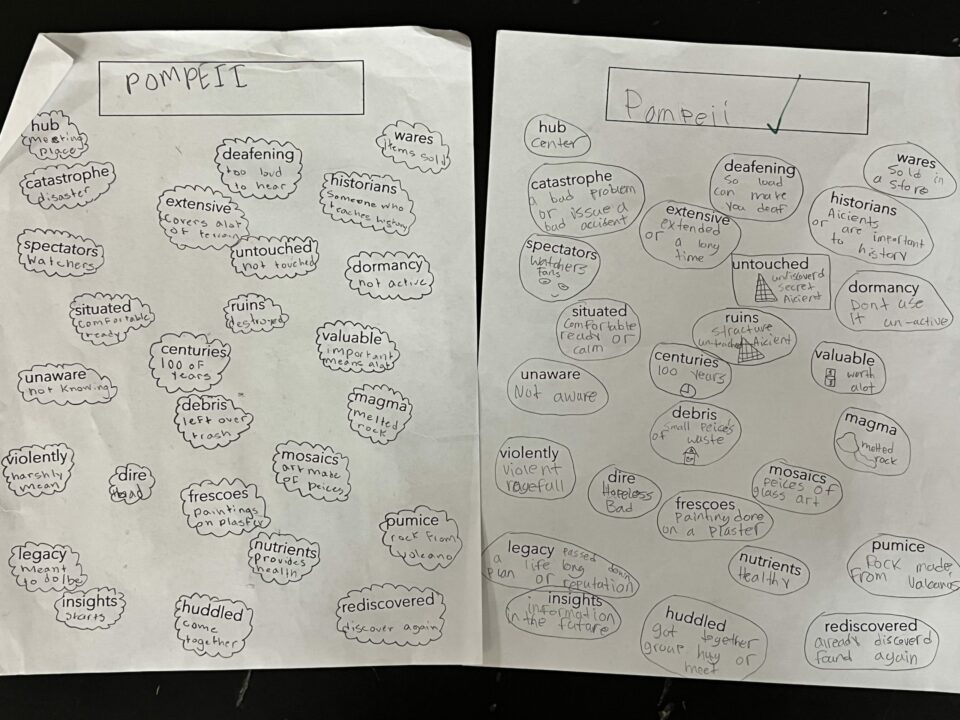 POMPEII
hub
meeting
place
wares
Items sold
deafening
too loud
to hear
catastrophe
disaster
historians
Someone who
teaches history
extensive
covers alot
of terrain
spectators
watchers
untouched
not touched
dormancy
not active
situated
comfortable
ready
ruins
destroyed
valuable
important
means alot
centuries
100 of
years
unaware
not knowing
debris
left over
trash
magma
melted
rock
violently
harshly
mean
dire
bad
mosaics
art made
of peices
frescoes
paintings
on plaster
pumice
rock from
volcano
nutrients
provides
health
legacy
meant
to do/be
insights
starts
huddled
come
together
rediscovered
discover again
Pompeii
hub
center
wares
Sold in
a store
deafening
So load
can make
you deaf
catastrophe
a bad problem
or issue a
bad accisent
historians
Aicients
or are important
to history
extensive
extended
or a long
time
spectators
Watchers
fans
untouched
undiscoverd
secret
Aicient
dormancy
Dont use
it un-active
situated
comfortable
ready or
calm
ruins
structure
untouched Aicient
centuries
100 years
valuable
worth
alot
unaware
Not aware
debris
Small peices
of waste
magma
melted
rock
violently
violent
ragefull
dire
Hopeless
Bad
mosaics
peices of
glass art
frescoes
Painting done
on a plaster
legacy passed down
a life long
plan or reputation
nutrients
Healthy
pumice
Rock made
from Valcanos
insights
information
in the future
huddled
got together
group huy or
meet
rediscovered
already discoverd
found again